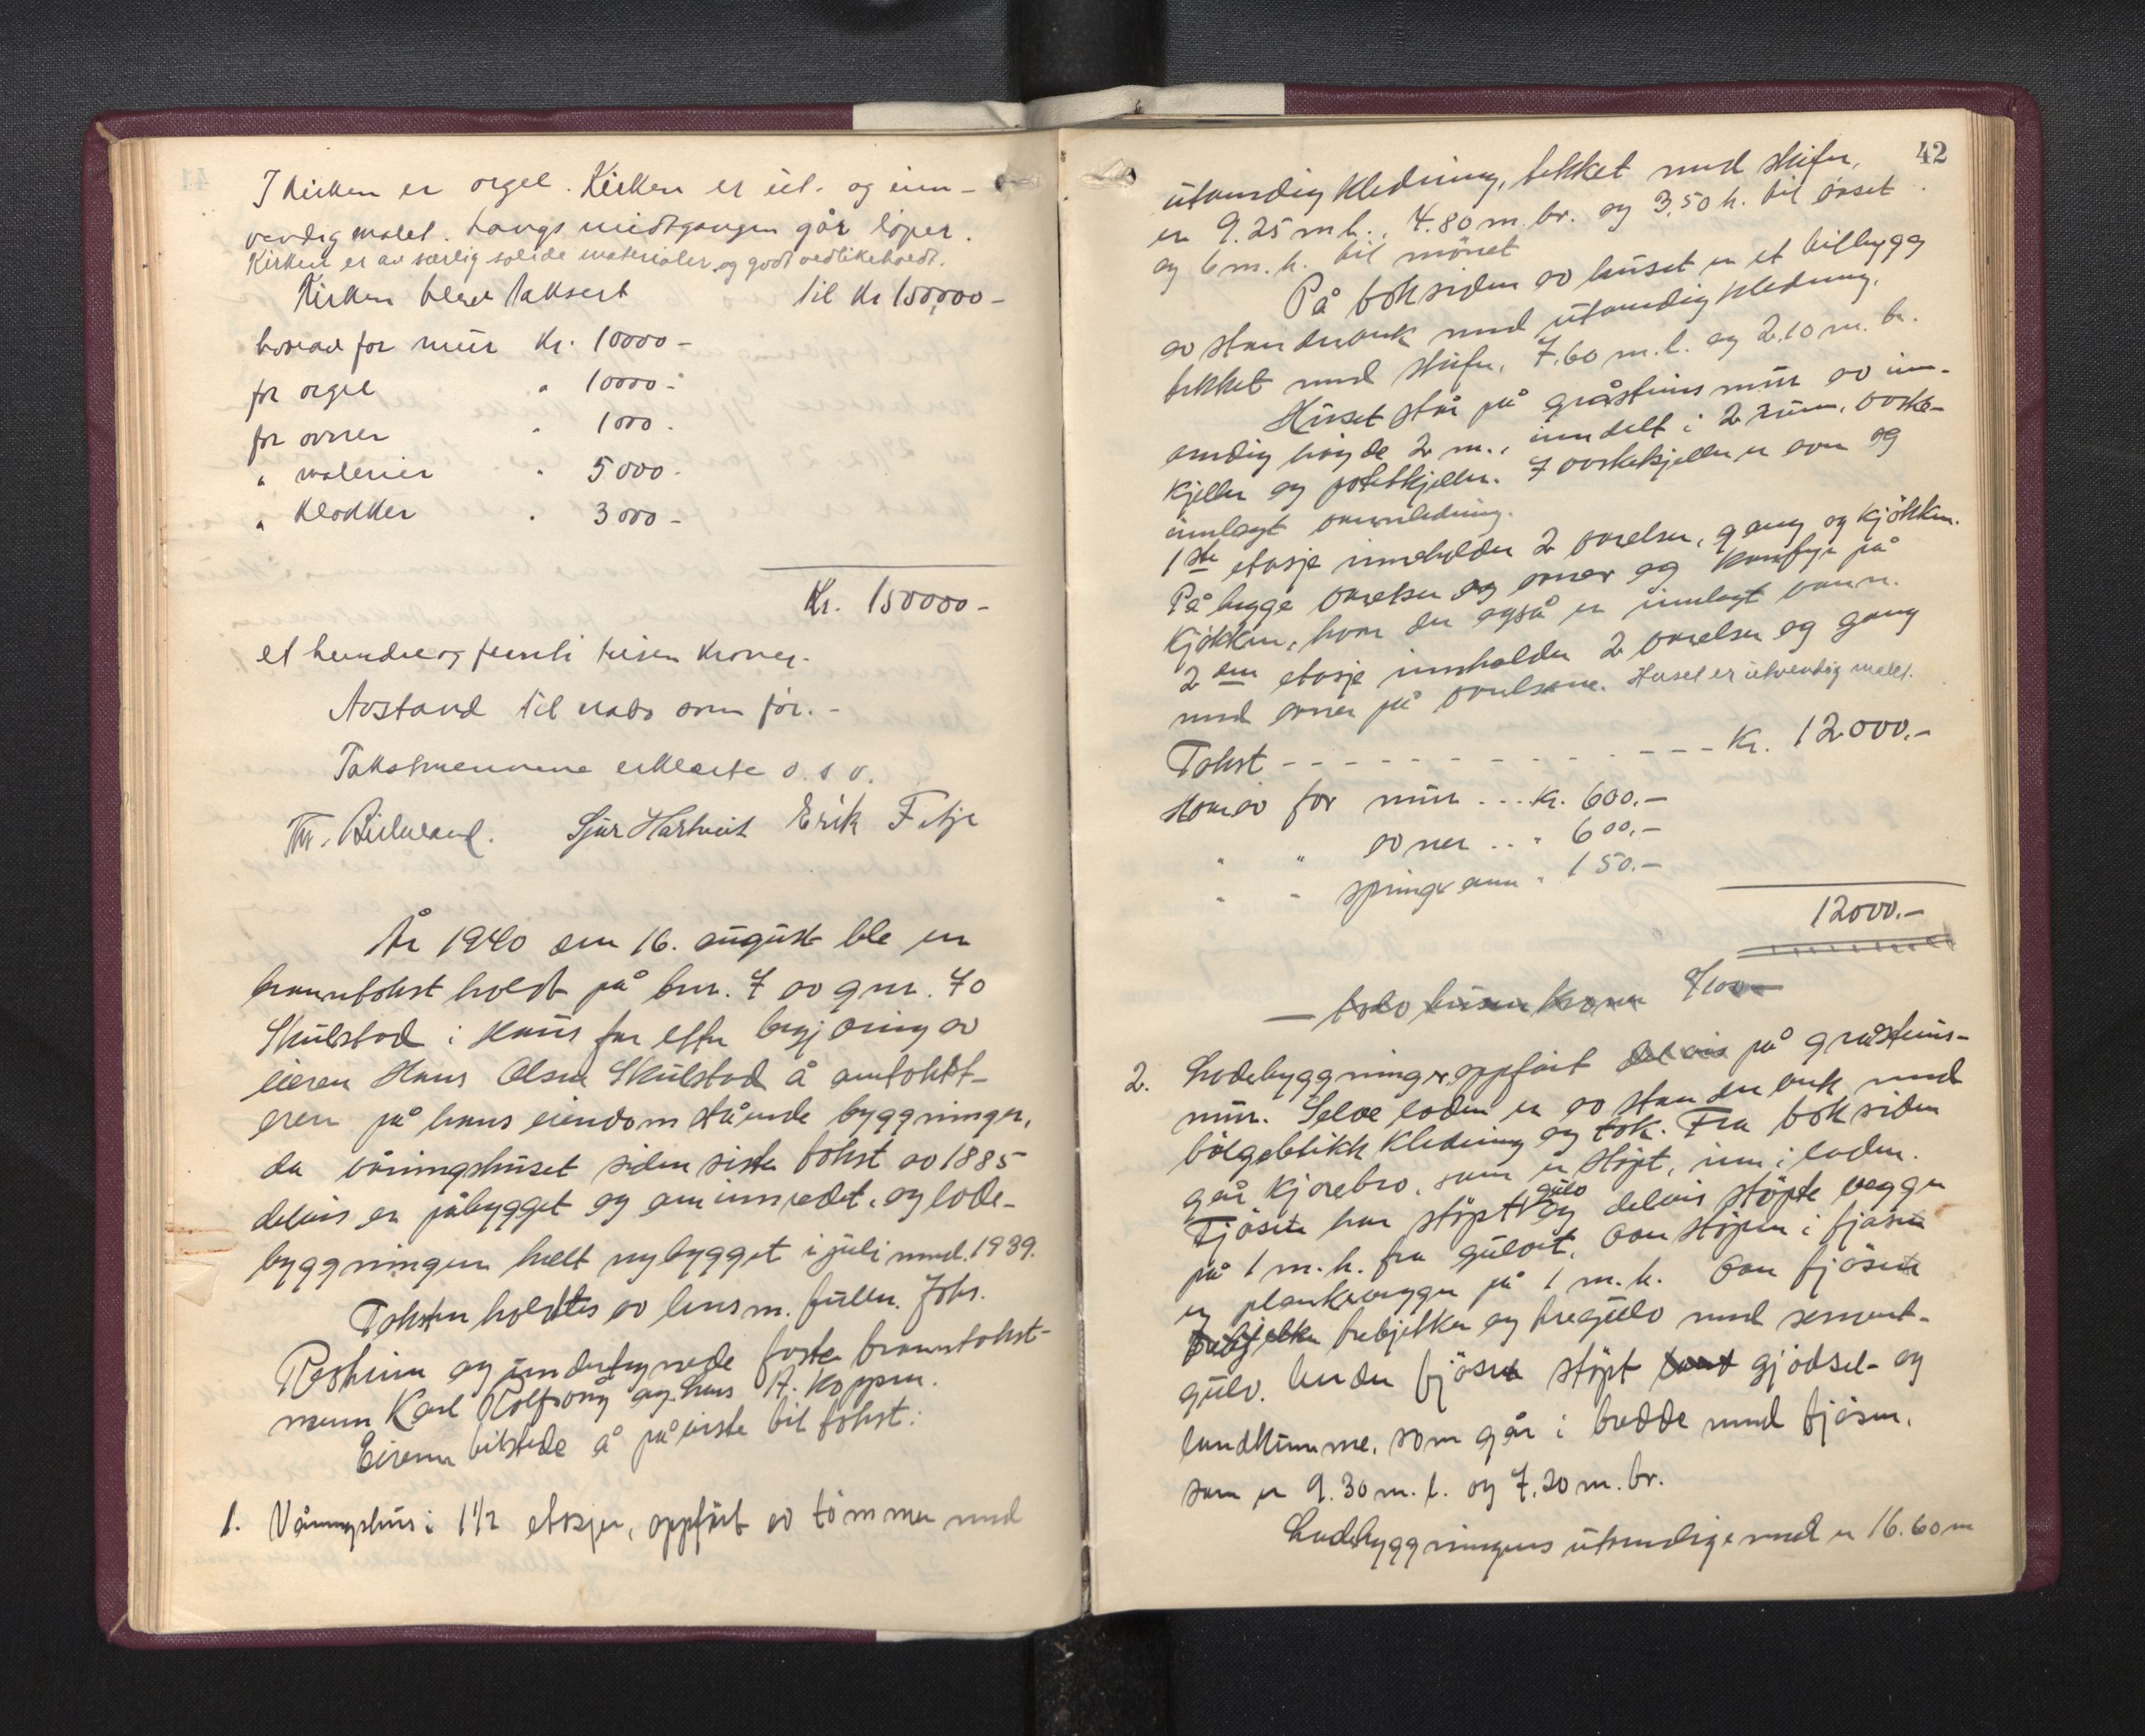 I kirken er orgel. Kirken er ut- og inn-
vendig malet. Langs midtgangen går löper.
Kirken er av særlig solide materialer og godt vedlikeholdt.
Kirken blev taksert til kr 150,000-
hvorav for mur kr. 10000-
for orgel " 10000-
for ovner " 1000-
" malerier " 5000-
" klokker " 3000-
Kr. 150000-
et hundre og femti tusen kroner.
Avstand til nabo som för. -
Takstmennene erklærte o.s.v.
Sjur Hartveit Erik Fitje
År 1940 den 16. august ble en
branntakst holdt på bnr. 7 av gnr. 70
Skulstad i Haus for efter begjæring av
eieren Hans Olsen Skulstad å omtakst-
eren på hans eiendom stående byggninger,
da våningshuset siden siste takst av 1885
delvis er påbygget og ominnredet, og löde-
byggningen helt nybygget i juli mnd. 1939.
Taksten holdtes av lensm. fullm. Johs.
og undertegnede faste branntakst-
menn Karl Rolfsvåg og Lars A. Koppen.
Eieren tilstede å påviste til takst:
1. Våningshus i 1 1/2 etasjer, oppfört av tömmer med
42
utvendig kledning, tekket med skifer,
er 9.25 m l., 4.80 m. br. og 3,50 h. til öset
og 6 m. h. til mönet
På baksiden av huset er et tilbygg
av standverk med utvendig kledning,
tekket med skifer, 7,60 m. l. og 2,10 m. br.
Huset står på gråsteins mur av inn-
vendig höyde 2 m., inndelt i 2 rum, vaske-
kjeller og potetkjeller. I vaskekjeller er ovn og
innlagt vannledning.
1ste etasje inneholder 2 værelser, gang og kjökken.
På begge værelser og ovner og komfyr på
kjökken, hvor der også er innlagt vann.
2den etasje innholder 2 værelser og gang
med ovner på værelsene. Huset er utvendig malt.
Takst - - - - - - - - - - - - - - Kr. 12000.-
Herav for mur ... kr. 600.-
" " ovner .. " 600.-
" " springvann " 150.-
12000.-
- tolv tusen kroner
2. Lödebyggninger oppfört delvis på gråsteins-
mur. Selve löden er av standverk med
bölgeblikk kledning og tak. Fra baksiden
går kjörebro, som er stöpt, inn i löden.
Fjöset har stöpt gulv og delvis stöpte vegger
på 1 m. h. fra gulvet, ovn stöpen i fjöset
er plankevegger på 1 m. h. Over fjöset
trebjelker trebjelker og tregulv med sement-
gulv. Under fjöset stöpt land gjödsel- og
landkumme, som går i bredde med fjöset,
som er 9.30 m. l. og 7,20 m. br.
Lödebyggningens utvendige mål er 16.60 m